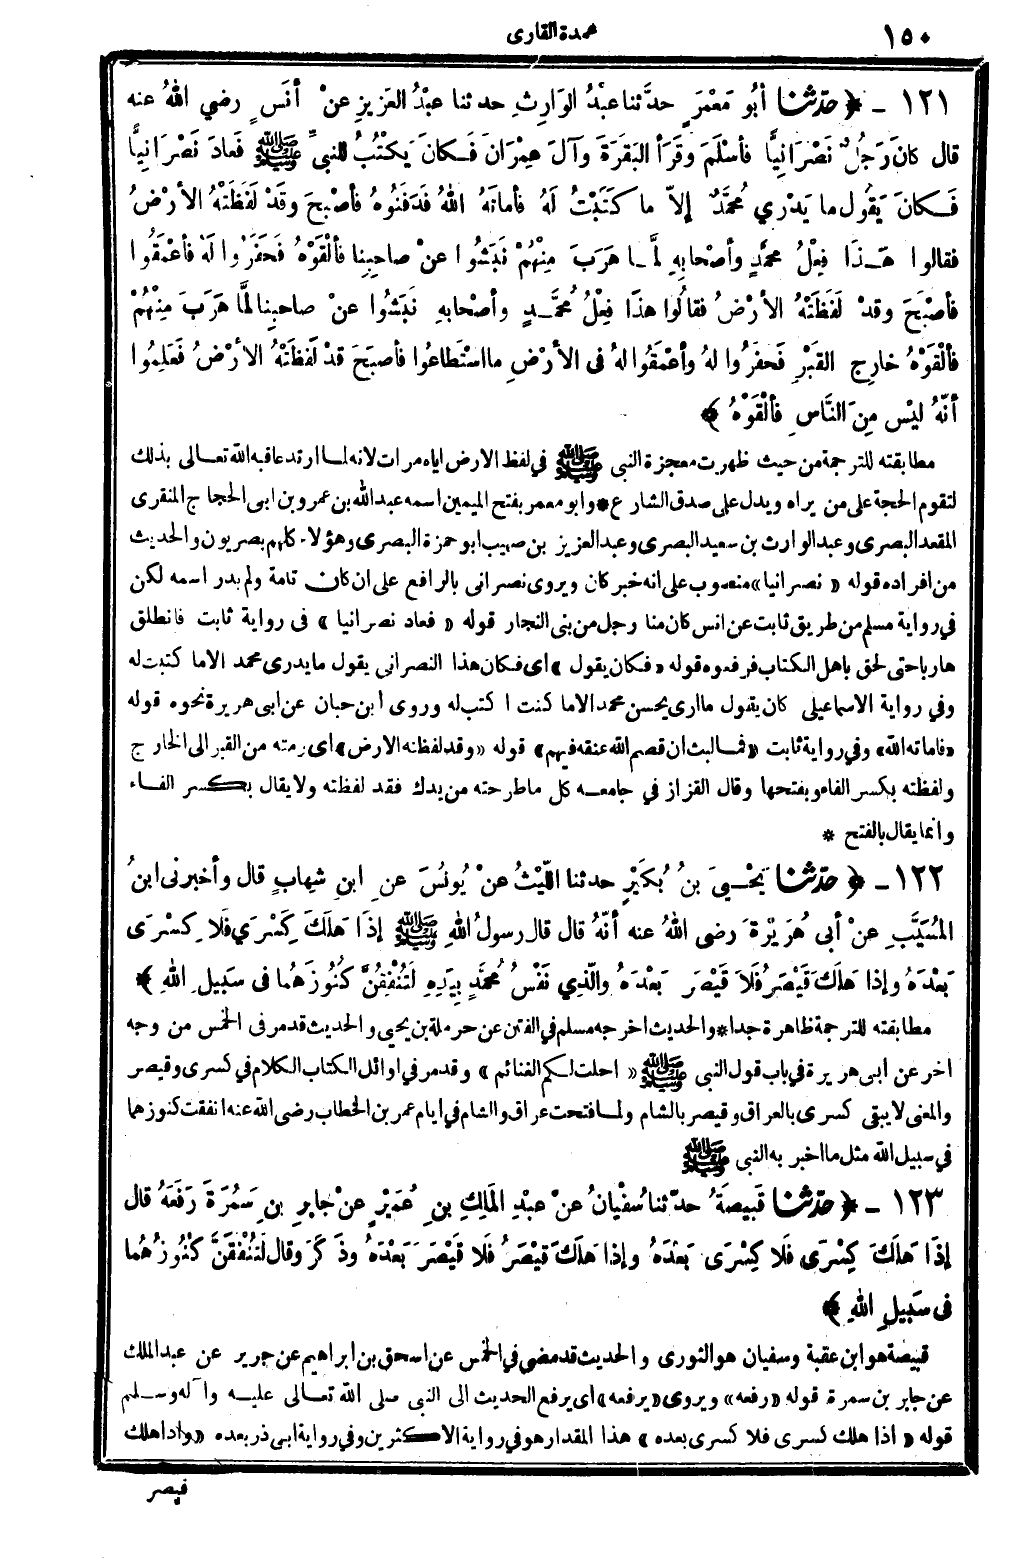 ١٥٠
عمدة القارى
١٢١ - ﴿ حدّثنا أبُو مَعْمَرٍ حدَّثنا عبْدُ الوَارِثِ حدثنا عبْدُ العَزِيزِ عنْ أنَسٍ رضي اللهُ عنه
قال كانَ رَجُلٌ نَصْرَانِيًّا فأسْلَمَ وقَرَأ البَقَرَةَ وآلَ عِمْرَانَ فَكانَ يَكْتُبُ لِلنبيِّ ﷺ فَعادَ نَصْرَانِيًّا
فَكانَ يَقُولُ ما يَدْرِي مُحَمَّدٌ إلاّ ما كَتَبْتُ لَهُ فأماتَهُ اللهُ فَدَفَنُوهُ فأصْبَحَ وقَدْ لَفَظَتْهُ الأرْضُ
فقالوا هَذا فِعْلُ محمَّدٍ وأصْحابِهِ لَمَّا هَرَبَ مِنْهُمْ نَبَشُوا عنْ صاحِبِنا فألْقَوْهُ فَحَفَرُوا لَهُ فأعْمَقُوا
فأصْبَحَ وقدْ لَفَظَتْهُ الأرْضُ فقالُوا هذَا فِعْلُ مُحَمَّدٍ وأصْحابِهِ نَبَشُوا عنْ صاحبِنا لمَّا هَرَبَ مِنْهُمْ
فألْقَوْهُ خارِجَ القَبْرِ فَحفَرُوا لهُ وأعْمَقُوا لهُ فى الأرْضِ ما اسْتَطاعُوا فأصبَحَ قدْ لَفَظَتْهُ الأرْضُ فَعَلِمُوا
أنّهُ ليْس مِنَ النَّاسِ فألْقَوْهُ ﴾
مطابقته للترجمة من حيث ظهرت معجزة النبى ﷺ في لفظ الارض اياه مرات لانه لما ارتد عاقبه الله تعالى بذلك
لتقوم الحجة على من يراه ويدل على صدق الشارع * وابو معمر بفتح الميمين اسمه عبد الله بن عمرو بن ابى الحجاج المنقرى
المقعد البصرى وعبد الوارث بن سعيد البصرى وعبد العزيز بن صهيب ابو حمزة البصرى وهؤلاء كلهم بصريون والحديث
من افراده قوله « نصرانيا » منصوب على انه خبر كان ويروى نصرانى بالرافع على ان كان تامة ولم يدر اسمه لكن
في رواية مسلم من طريق ثابت عن انس كان منا رجل من بنى النجار قوله « فعاد نصرانيا » فى رواية ثابت فانطلق
هاربا حتى لحق باهل الكتاب فرفعوه قوله « فكان يقول » اى فكان هذا النصرانى يقول ما يدرى محمد الا ما كتبت له
وفي رواية الاسماعيلى كان يقول ما ارى يحسن محمد الا ما كنت ا كتب له وروى ابن حبان عن ابى هريرة نحوه قوله
«فاماته الله» وفي رواية ثابت «فما لبث ان قصم الله عنقه فيهم» قوله «وقد لفظته الارض» اى رمته من القبر الى الخارج
ولفظته بكسر الفاء وبفتحها وقال القزاز في جامعه كل ما طرحته من يدك فقد لفظته ولا يقال بكسر الفاء
وانما يقال بالفتح *
١٢٢ - ﴿ حدّثنا يَحْيَ بنُ بُكَيْرٍ حدثنا اللّيْثُ عنْ يُونُسَ عنِ ابنِ شِهابٍ قال وأخبرنى ابنُ
المُسَيَّبِ عنْ أبى هُرَيْرَةَ رضى اللهُ عنه أنّهُ قال قال رسولُ اللهِ ﷺ إذَا هَلَكَ كِسْرَي فَلا كِسْرَى
بَعْدَهُ وإذا هَلَكَ قَيْصَرُ فَلاَ قَيْصَرَ بَعْدَهُ والّذِي نَفْسُ مُحَمَّدٍ بِيَدِهِ لَتُنْفِقُنَّ كُنُوزَهُما فى سَبِيلِ اللهِ ﴾
مطابقته للترجمة ظاهرة جدا * والحديث اخرجه مسلم في الفتن عن حرملة بن يحيى والحديث قد مر فى الخمس من وجه
اخر عن ابى هريرة في باب قول النبى ﷺ « احلت لكم الغنائم » وقد مر في اوائل الكتاب الكلام في كسرى وقيصر
والمعنى لا يبقى كسرى بالعراق وقيصر بالشام ولما فتحت عراق والشام في ايام عمر بن الخطاب رضى الله عنه انفقت كنوزهما
في سبيل الله مثل ما اخبر به النبى ﷺ
١٢٣ - ﴿ حدّثنا قَبِيصَةُ حدّثنا سُفْيانُ عنْ عبْدِ المَلِكِ بنِ عُمَيْرٍ عنْ جابِرِ بنِ سَمُرَةَ رَفَعَهُ قال
إذَا هَلَكَ كِسْرَى فَلَا كِسْرَى بَعْدَهُ وإذا هَلَكَ قَيْصَرُ فَلَا قَيْصَرَ بَعْدَهُ وذَكَرَ وقال لَتُنْفَقَنَّ كُنُوزُهُما
فى سَبِيلِ اللهِ ﴾
قبيصة هو ابن عقبة وسفيان هو الثورى والحديث قد مضى في الخمس عن اسحق بن ابراهيم عن جرير عن عبد الملك
عن جابر بن سمرة قوله «رفعه» ويروى «يرفعه» اى يرفع الحديث الى النبى صلى الله تعالى عليه وآله وسلم
قوله « اذا هلك كسرى فلا كسرى بعده » هذا المقدار هو في رواية الاكثرين وفي رواية ابى ذر بعده « واذا هلك
قيصر